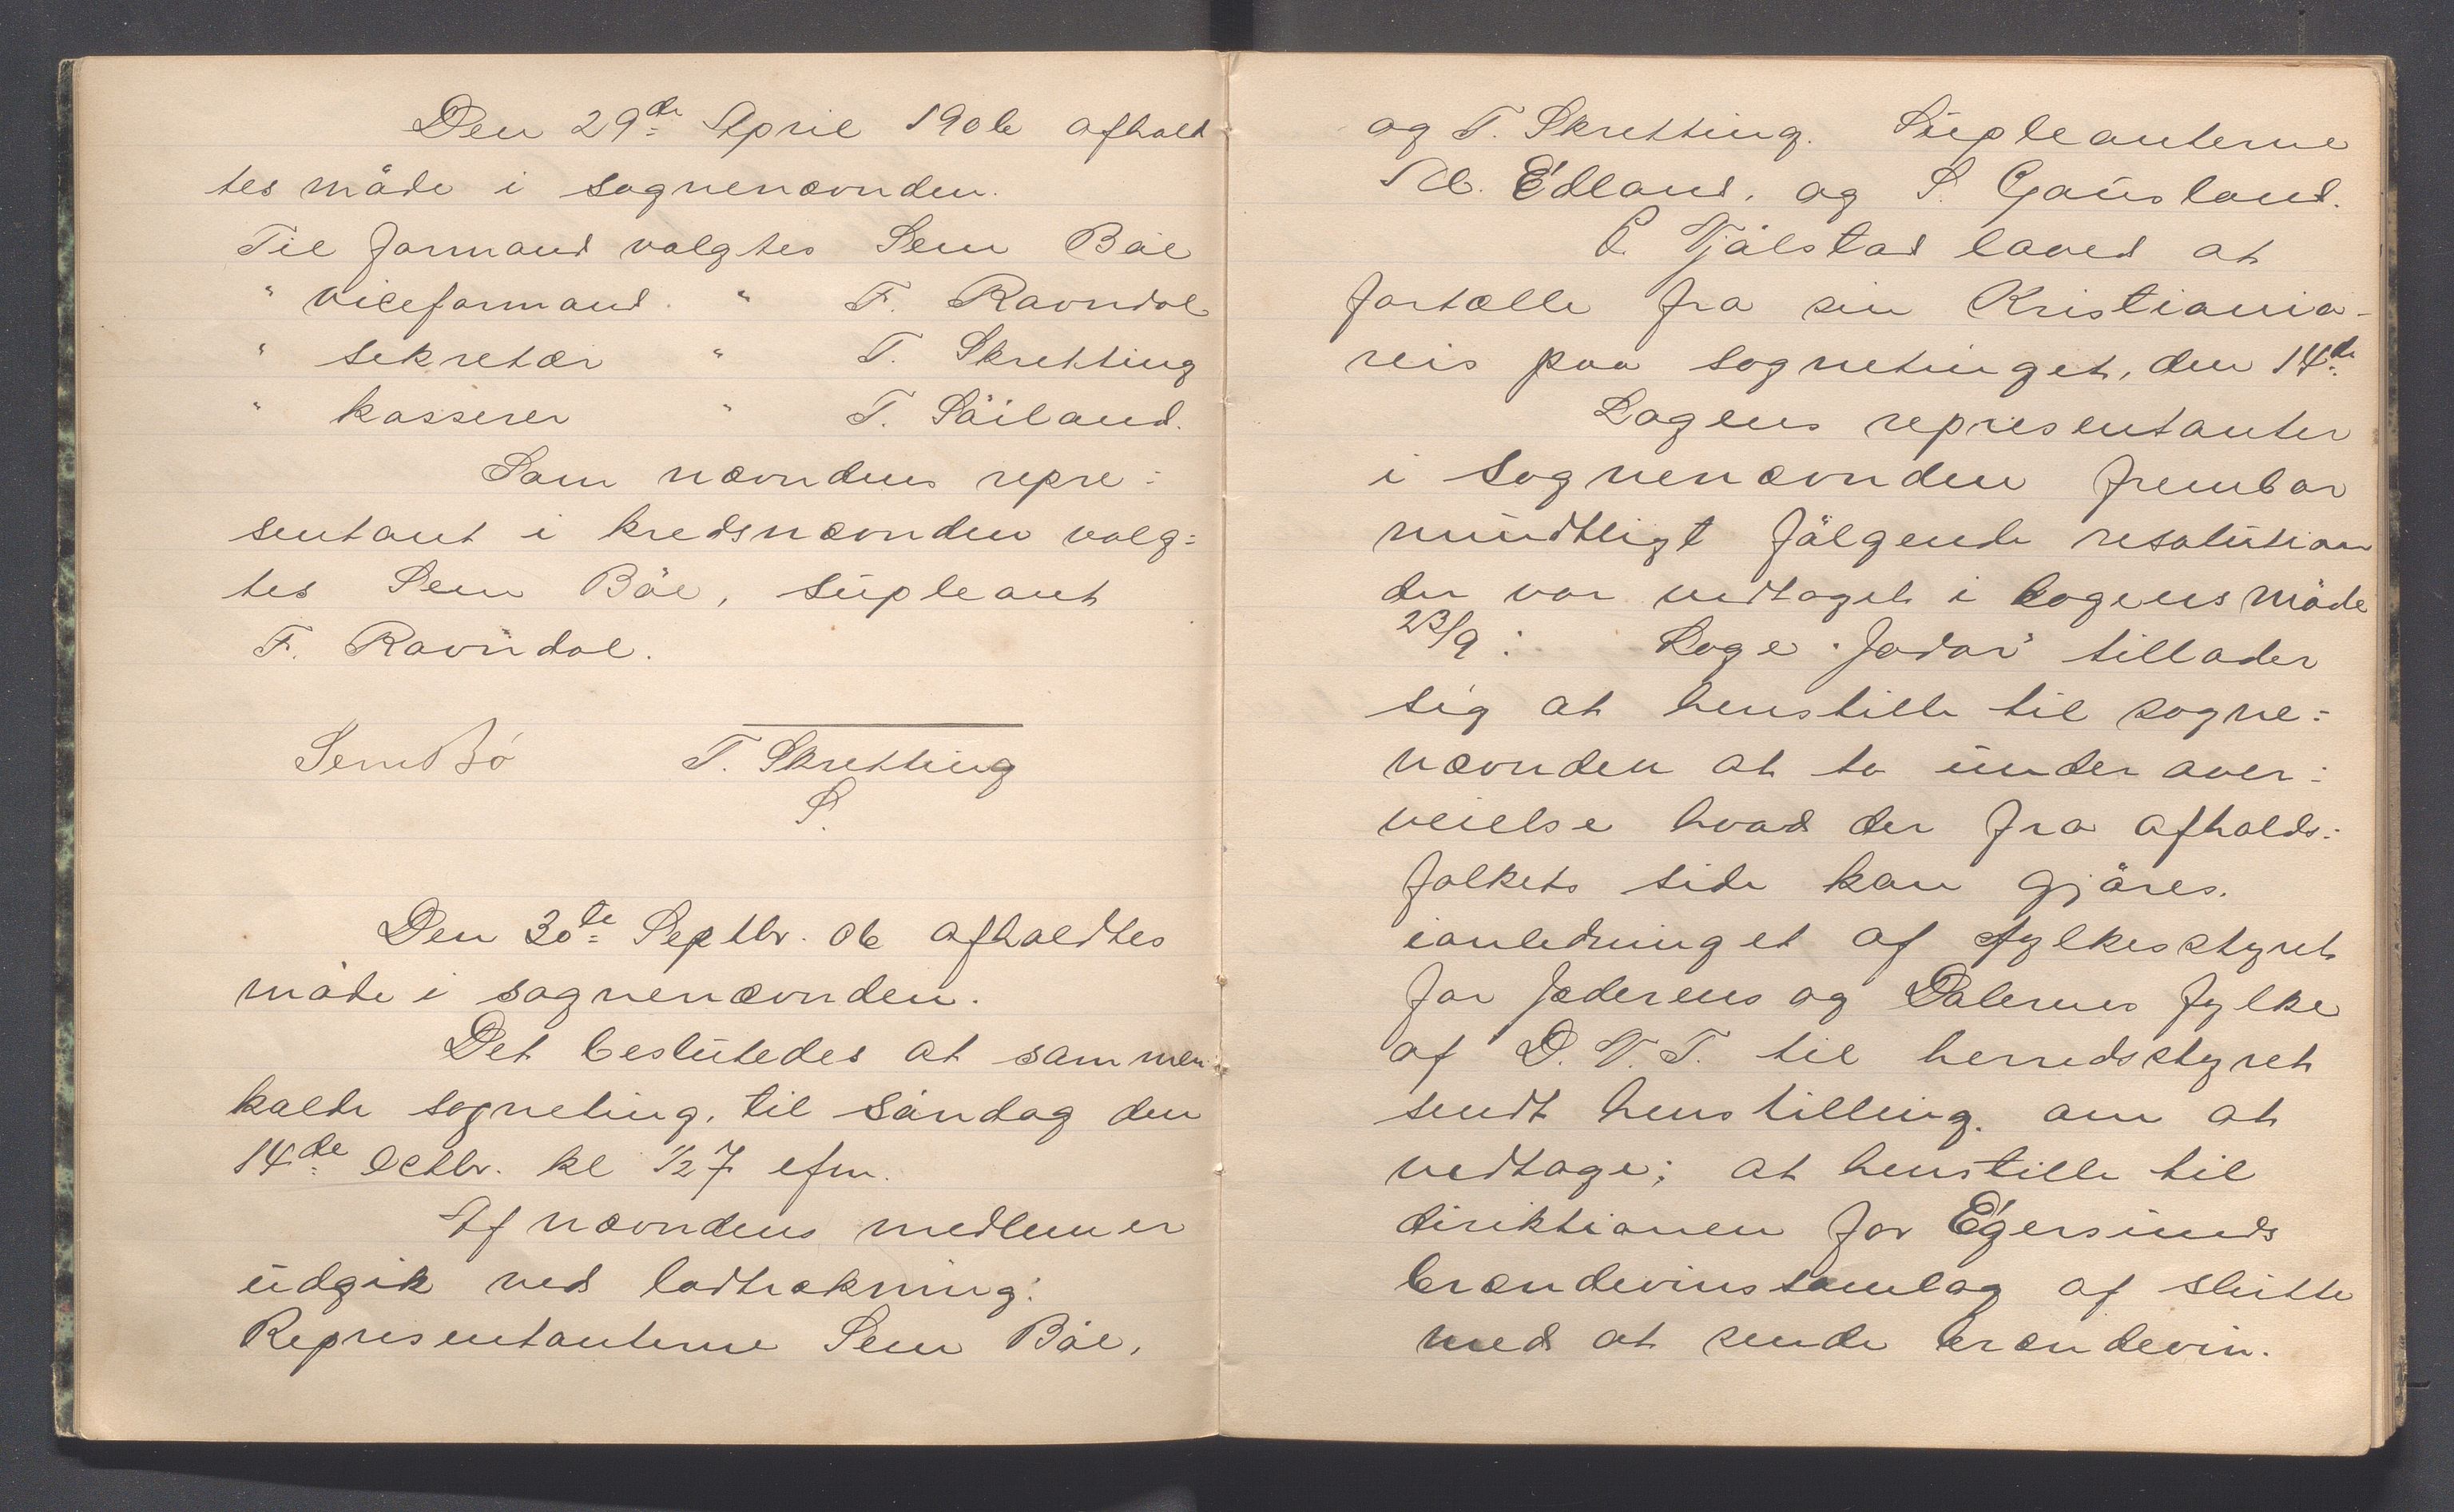 Den 29de April 1906 afholt
tes møde i sognenævnden.
Til formand valgtes Sem Bøe
" viceformand " F. Ravndal
" sekretær " T. Skretting
" kasserer " T. Söiland.
Som nævndens repre=
sentant i kredsnævnden valg=
tes Sem Bøe, supleant
F. Ravndal.
Sem Bö T. Skretting
S.
Den 30te Septbr. 06 afholdtes
møde i sognenævnden.
Det beslutedes at sammen
kalde sogneting, til Søndag den
14de Octbr. kl 1/2 7 efm.
Af nævndens medlemer
udgik ved lodtrækning:
Representanterne Sem Bøe,
og T. Skretting. Supleanterne
M. Edland, og S. Gausland.
Tjålstad loved at
fortælle fra sin Kristiania-
reis paa sognetinget, den 14de
Logens representanter
i sognenævnden frembar
mundtligt følgende resolution
der var vedtaget i logens møde
23/9: Loge "Jadar" tillader
sig at henstille til sogne=
nævnden at ta under over=
veielse hvad der fra afholds=
folkets side kan gjøres.
ianledninget af fylkesstyret
for Jæderens og Dalernes fylke
af D. V. T. til herredsstyret
sendt henstilling. om at
vedtage; at henstille til
direktionen for Egersunds
brændevinssamlag af slutte
med at sende brændevin.